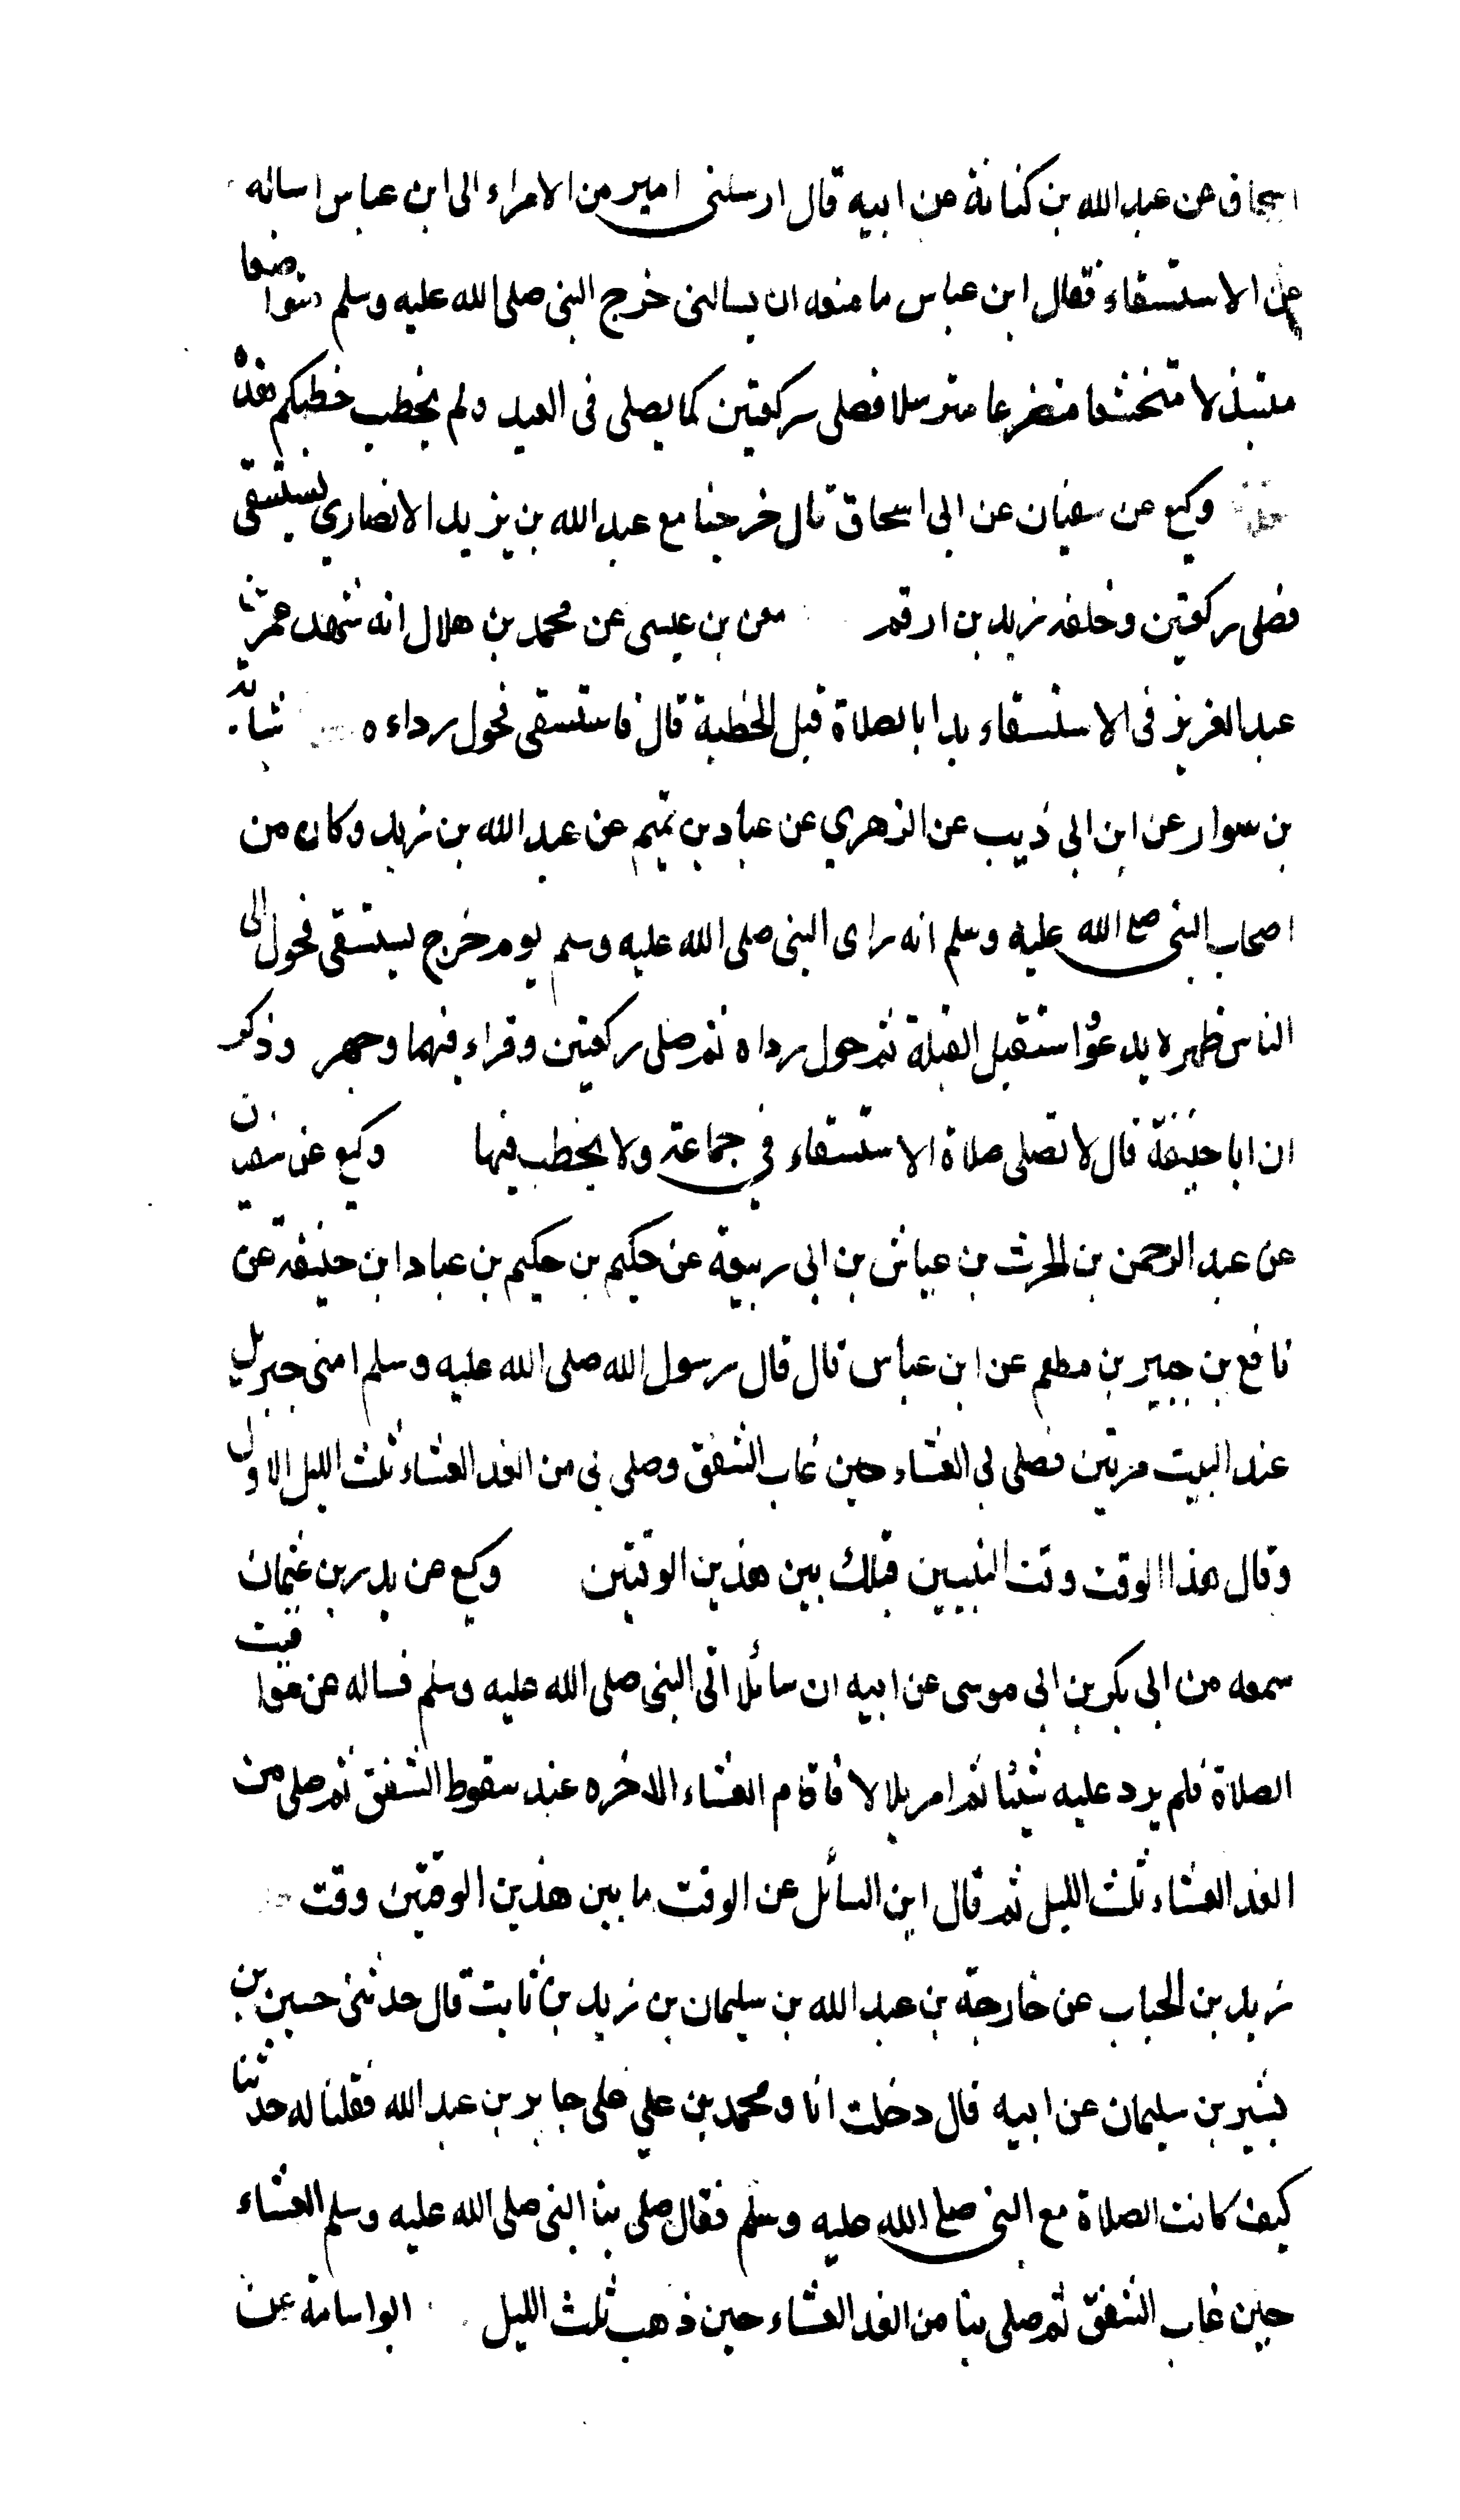 اسحاق عن عبد الله بن كنانة عن ابيه قال ارسلني امير من الامراء الى ابن عباس اساله
عن الاستسقاء فقال ابن عباس ما منعه ان يسالني خرج النبي صلى الله عليه وسلم متواضعا
متبذلا متخشعا متضرعا مترسلا فصلى ركعتين كما يصلى في العيد ولم يخطب خطبكم هذه
وكيع عن سفيان عن ابي اسحاق قال خرجنا مع عبد الله بن يزيد الانصاري نستسقي
فصلى ركعتين وخلفه زيد بن ارقم معن بن عيسى عن محمد بن هلال انه شهد عمر بن
عبد العزيز في الاستسقاء بدا بالصلاة قبل الخطبة قال فاستسقى فحول رداءه شبابة
بن سوار عن ابن ابي ذيب عن الزهري عن عباد بن تميم عن عبد الله بن زيد وكان من
اصحاب النبي صلع الله عليه وسلم انه راى النبي صلى الله عليه وسلم يوم خرج يستسقي فحول الى
الناس ظهره يدعوا استقبل القبلة ثم حول رداه ثم صلى ركعتين وقراء فيهما وجهر وذكر
ان ابا حنيفة قال لا تصلى صلاة الاستسقاء في جماعة ولا يخطب فيها وكيع عن سفين
عن عبد الرحمن بن الحرث بن عياش بن ابي ربيعة عن حكيم بن حكيم بن عباد ابن حنيفة عن
نافع بن جبير بن مطعم عن ابن عباس قال قال رسول الله صلى الله عليه وسلم امني جبريل
عند البيت مرتين فصلى بي العشاء حين غاب الشفق وصلى بي من الغد العشاء ثلث الليل الاول
وقال هذا الوقت وقت النبيين قبلك بين هذين الوقتين وكيع عن بدر بن عثمان
سمعه من ابي بكر بن ابي موسى عن ابيه ان سائلا اتى النبي صلى الله عليه وسلم فساله عن مواقيت
الصلاة فلم يرد عليه شيئا ثم امر بلالا فاقام العشاء الاخره عند سقوط الشفق ثم صلى من
الغد العشاء ثلث الليل ثم قال اين السائل عن الوقت ما بين هذين الوقتين وقت
زيد بن الحباب عن خارجة بن عبد الله بن سليمان بن زيد بن ثابت قال حدثني حسين بن
بشير بن سليمان عن ابيه قال دخلت انا ومحمد بن علي على جابر بن عبد الله فقلنا له حدثنا
كيف كانت الصلاة مع النبي صلع الله عليه وسلم فقال صلى بنا النبي صلى الله عليه وسلم العشاء
حين غاب الشفق ثم صلى بنا من الغد العشاء حين ذهب ثلث الليل ابو اسامة عن